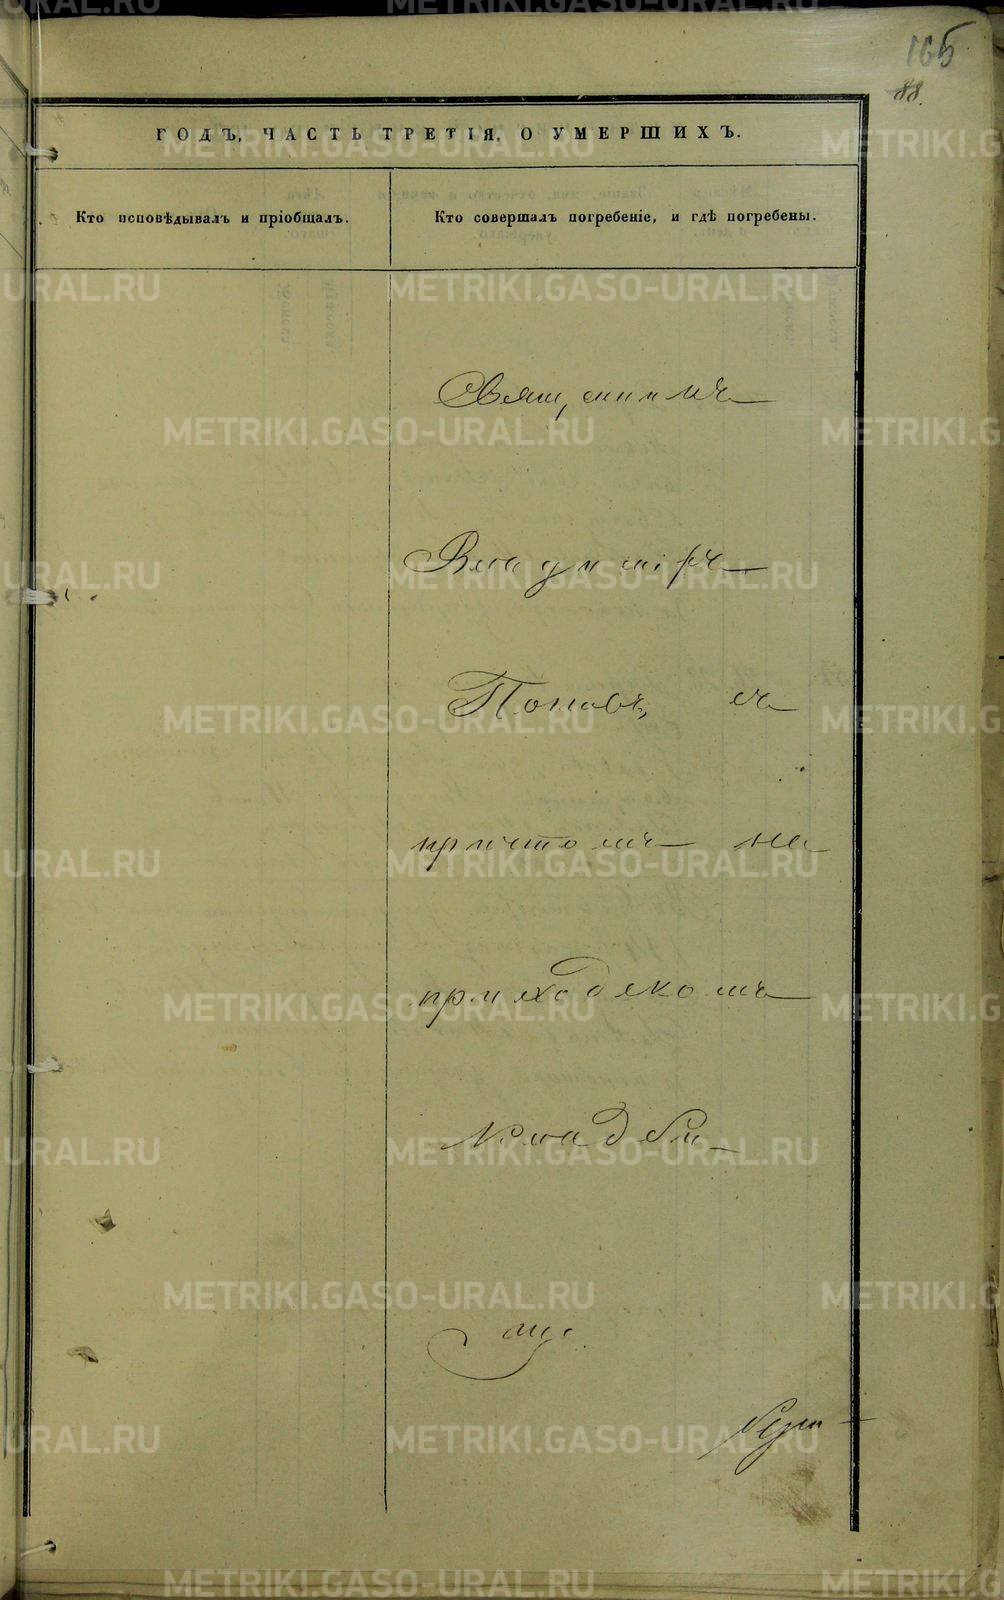 165
88.
ГОДЪ, ЧАСТЬ ТРЕТІЯ, О УМЕРШИХЪ.
Кто исповѣдывалъ и пріобщалъ.
Кто совершалъ погребеніе, и гдѣ погребены.
Священникъ
Владиміръ
Поповъ, съ
причтомъ на
приходскомъ
кладби-
щѣ.
METRIKI.GASO-URAL.RU